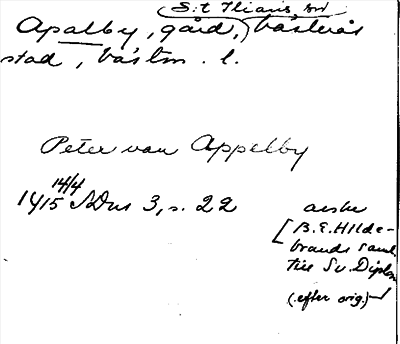 S:t Ilians sn
Apalby, gård, Västerås
stad, Västm. l.
Peter van Appelby
14/4
1415 SDns 3, s. 22
avskr
[B.E. Hilde-
brands saml.
till Sv. Diplom
(efter orig.)]